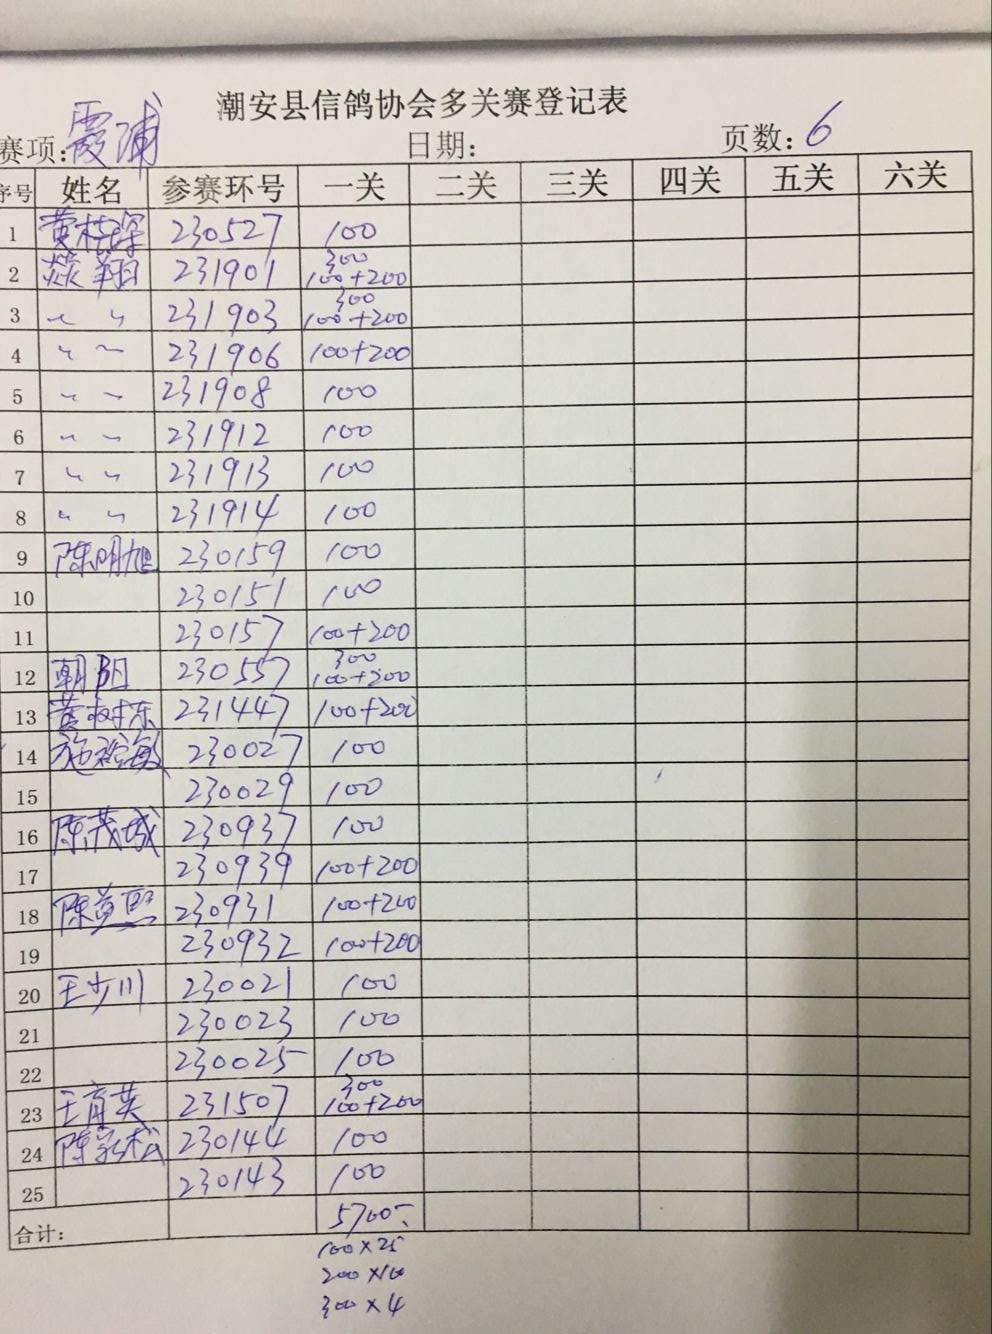 潮安县信鸽协会多关赛登记表
赛项:霞浦 日期: 页数:6
序号 姓名 参赛环号 一关 二关 三关 四关 五关 六关
1 230527 100
300
2 燚翔 231901 100+200
300
3 〃 〃 231903 100+200
4 〃 〃 231906 100+200
5 〃 〃 231908 100
6 〃 〃 231912 100
7 〃 〃 231913 100
8 〃 〃 231914 100
9 陈明旭 230159 100
10 230151 100
11 230157 100+200
300
12 朝阳 230557 100+200
13 黄树东 231447 100+200
14 230027 100
15 230029 100
16 陈茂城 230937 100
17 230939 100+200
18 230931 100+200
19 230932 100+200
20 王少川 230021 100
21 230023 100
22 230025 100
300
23 王育英 231507 100+200
24 陈家松 230144 100
25 230143 100
合计: 5700
100×25
200×10
300×4